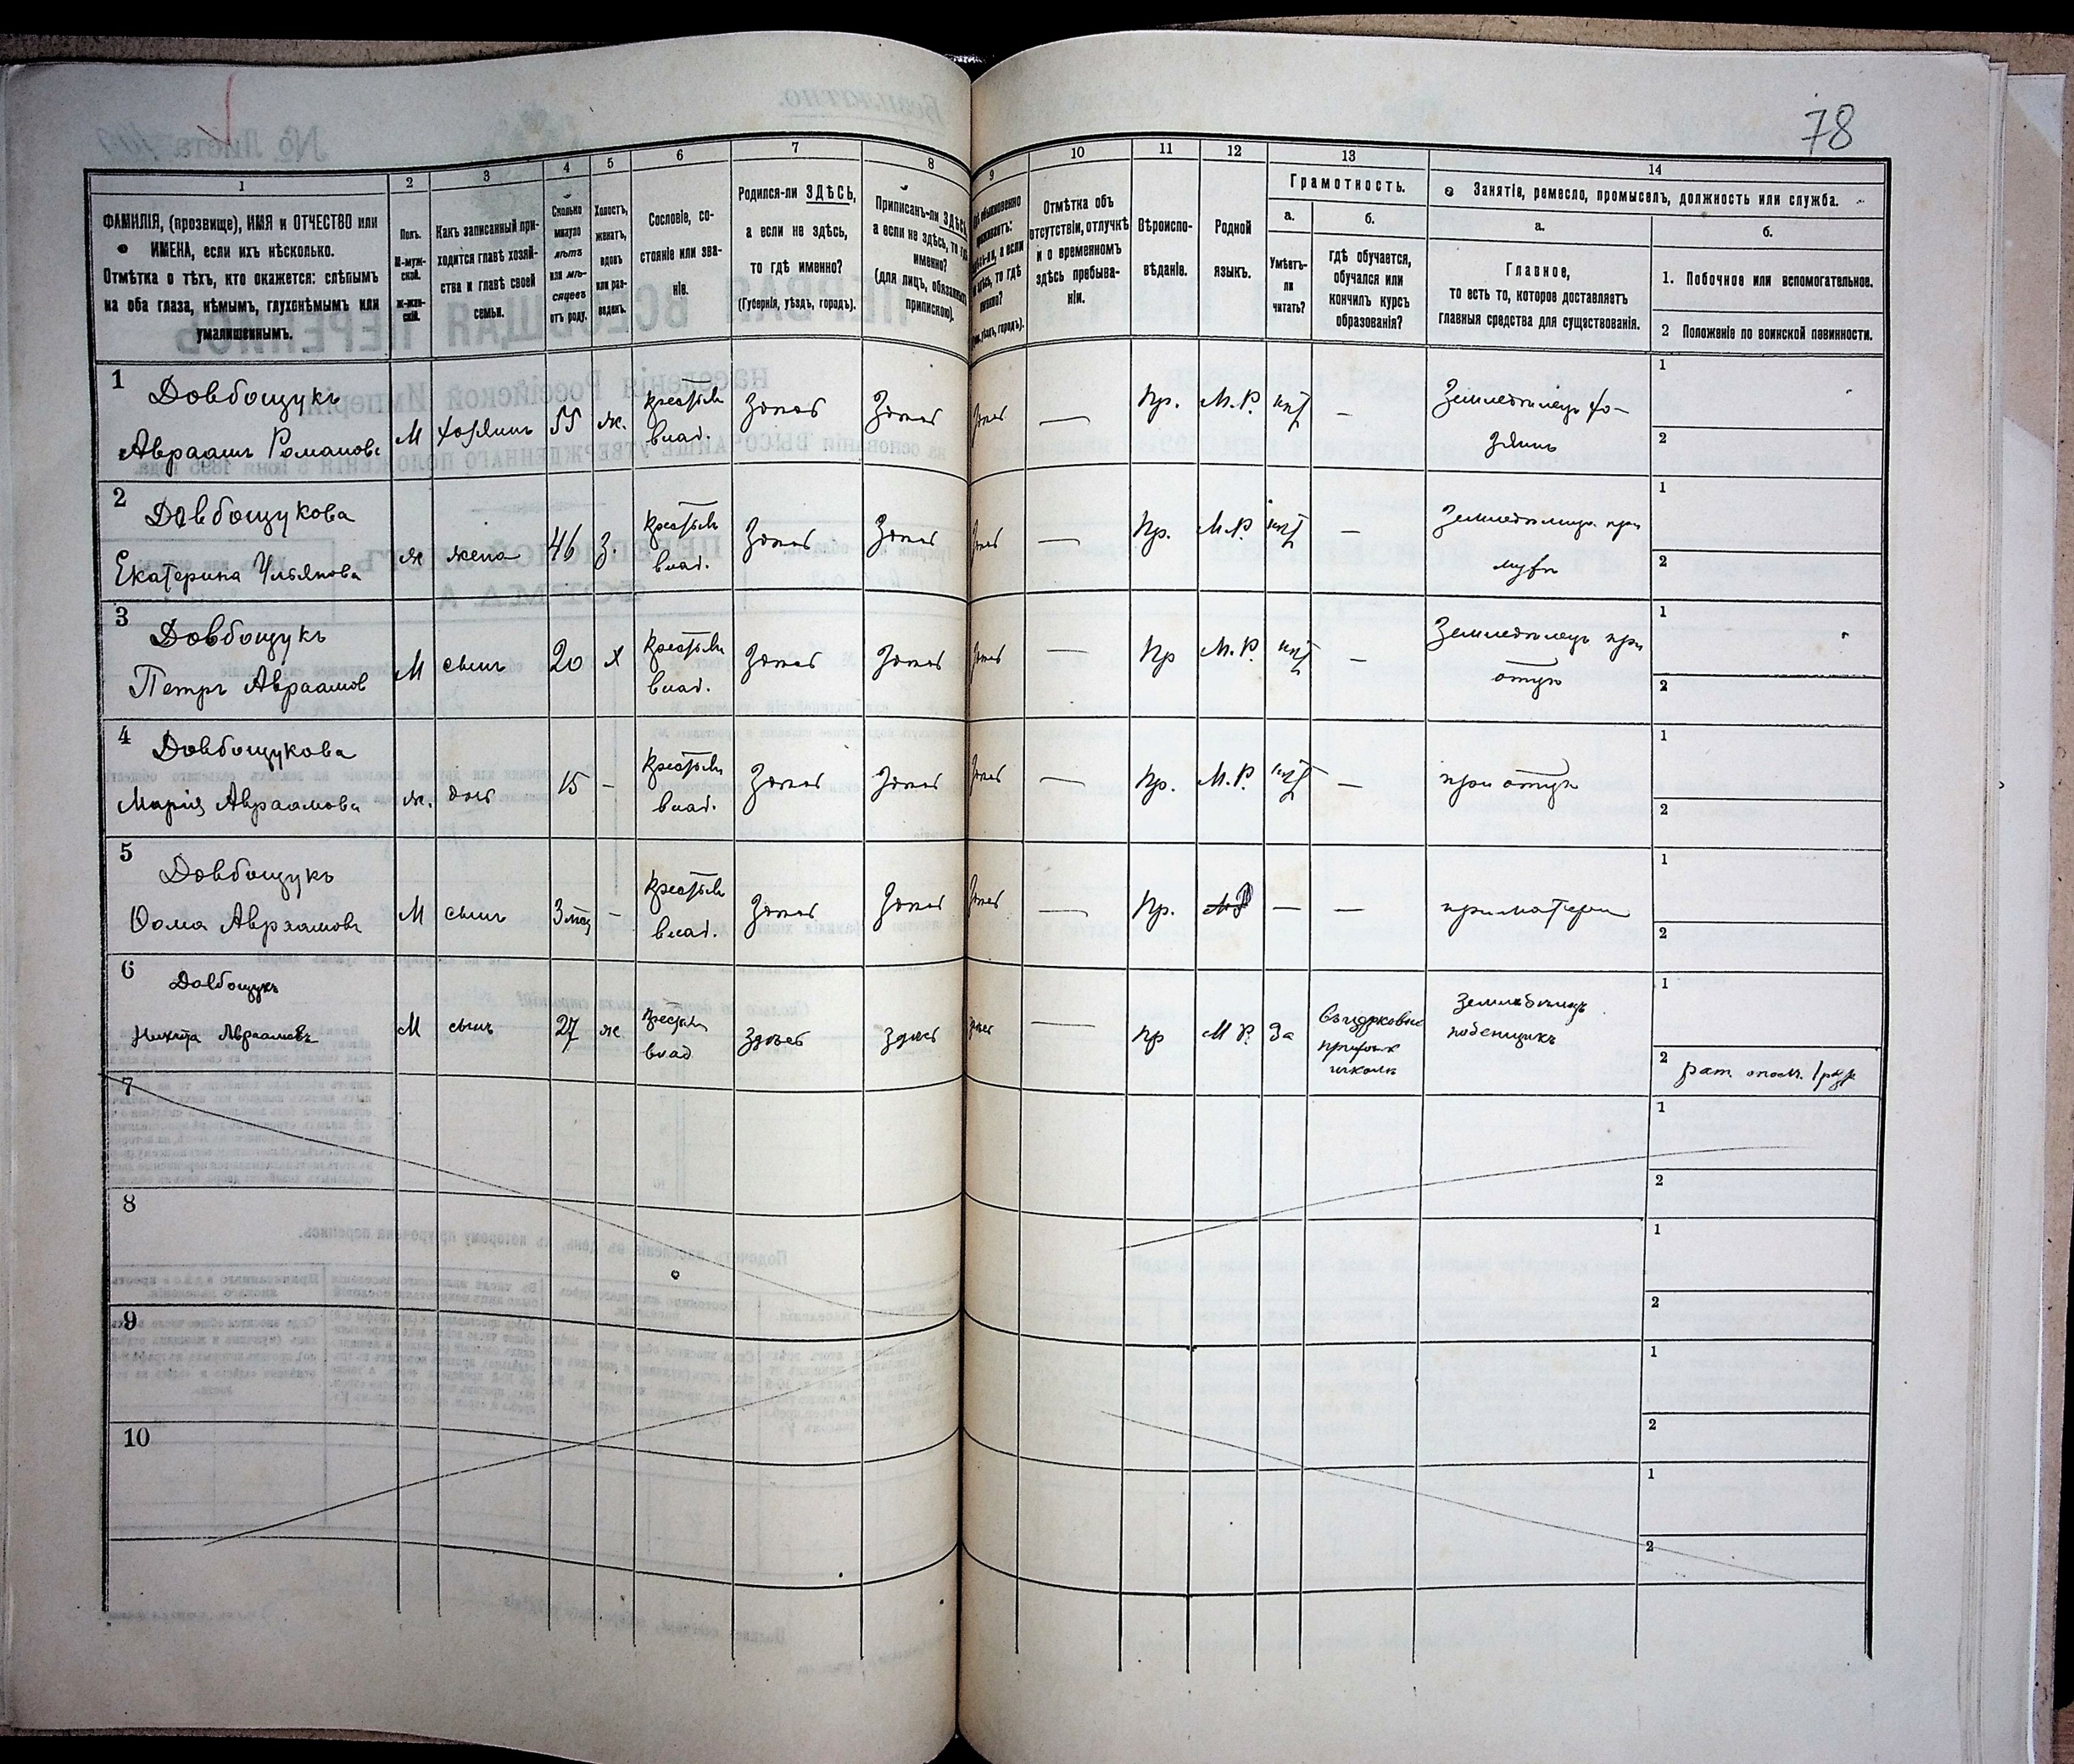 78
1
2
3
4
5
6
7
8
9
10
11
12
13
14
ФАМИЛІЯ, (прозвище), ИМЯ и ОТЧЕСТВО или
ИМЕНА, если ихъ нѣсколько.
Отмѣтка о тѣхъ, кто окажется: слѣпымъ
на оба глаза, нѣмымъ, глухонѣмымъ или
умалишеннымъ.
Полъ.
М-муж-
ской.
ж-жен-
скій.
Какъ записанный при-
ходится главѣ хозяй-
ства и главѣ своей
семьи.
Сколько
минуло
лѣтъ
или мѣ-
сяцевъ
отъ роду.
Холостъ,
женатъ,
вдовъ
или раз-
веденъ.
Сословіе, со-
стояніе или зва-
ніе.
Родился-ли ЗДѢСЬ,
а если не здѣсь,
то гдѣ именно?
(Губернія, уѣздъ, городъ).
Приписанъ-ли ЗДѢСЬ,
а если не здѣсь, то гдѣ
именно?
(для лицъ, обязанныхъ
припискою).
Отмѣтка объ
отсутствіи, отлучкѣ
и о временномъ
здѣсь пребыва-
ніи.
Вѣроиспо-
вѣданіе.
Родной
языкъ.
Грамотность.
а.
Умѣетъ-
ли
читать?
б.
гдѣ обучается,
обучался или
кончилъ курсъ
образованія?
Занятіе, ремесло, промыселъ, должность или служба.
а.
Главное,
то есть то, которое доставляетъ
главныя средства для существованія.
б.
1. Побочное или вспомогательное.
2 Положеніе по воинской повинности.
1 Довбощукъ
Авраамъ Романовъ
М
хозяинъ
55
ж.
крестьян
влад.
Здѣсь
Здѣсь
Здѣсь
—
Пр.
М.Р.
нѣт
—
Земледѣлецъ хо-
зяинъ
1
2
2 Довбощукова
Екатерина Ульянова
ж
жена
46
З.
крестьян
влад.
Здѣсь
Здѣсь
Здѣсь
—
Пр.
М.Р.
нѣт
—
при
мужѣ
1
2
3 Довбощукъ
Петръ Авраамов
М
сынъ
20
Х
крестьян
влад.
Здѣсь
Здѣсь
Здѣсь
—
Пр
М.Р.
нѣт
—
Земледѣлецъ при
отцѣ
1
2
4 Довбощукова
Марія Авраамова
ж.
дочь
15
-
крестьян
влад.
Здѣсь
Здѣсь
Здѣсь
—
Пр.
М.Р.
нѣт
—
при отцѣ
1
2
5 Довбощукъ
Ѳома Авраамовъ
М
сынъ
3 мѣс
-
крестьян
влад.
Здѣсь
Здѣсь
Здѣсь
—
Пр.
МР
—
—
при матери
1
2
6 Довбощукъ
Никита Авраамовъ
М
сынъ
27
ж
крестьян
влад
Здѣсь
здѣсь
здѣсь
—
пр
М Р.
Да
школѣ
поденщикъ
1
2 рат. ополч. 1 раз
7
1
2
8
1
2
9
1
2
10
1
2